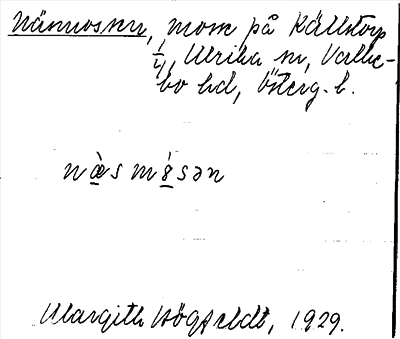 Näsmossen, mosse på Källstorp
1/4, Ulrika sn, Valke-
bo hd, Österg. l.
næ̀smȣ́sən
Margith Högfeldt, 1929.